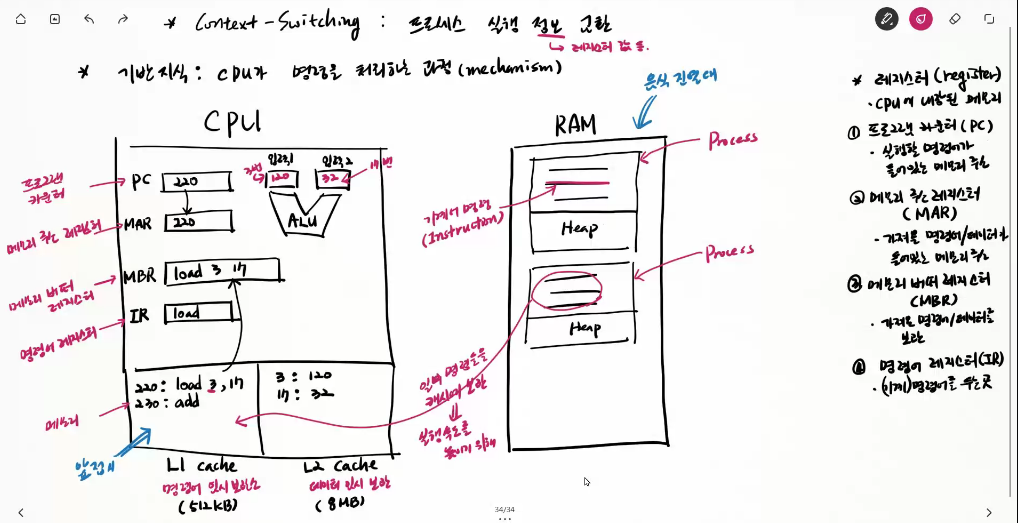 * Context-Switching : 프로세스 실행 정보 교환
↳ 레지스터 값 등.
* 기반지식 : CPU가 명령을 처리하는 과정 (mechanism)
CPU
프로그램 카운터
PC
220
3번
입력1
120
입력2
32
17번
메모리 주소 레지스터
MAR
220
ALU
메모리 버퍼 레지스터
MBR
load 3 17
명령어 레지스터
IR
load
메모리
220 : load 3, 17
230 : add
3 : 120
17 : 32
앞접시
L1 cache
명령어 임시 보관소
(512KB)
L2 cache
데이터 임시 보관
(8MB)
RAM
음식 진열대
Process
기계어 명령
(Instruction)
Heap
Process
Heap
일부 명령들을
캐시에 보관
실행속도를
높이기 위해
* 레지스터 (register)
· CPU에 내장된 메모리
① 프로그램 카운터 (PC)
· 실행할 명령어가
들어있는 메모리 주소
② 메모리 주소 레지스터
(MAR)
· 가져올 명령어/데이터가
들어있는 메모리 주소
③ 메모리 버퍼 레지스터
(MBR)
· 가져온 명령어/데이터를
보관
④ 명령어 레지스터 (IR)
· (기계)명령어를 두는 곳
34/34